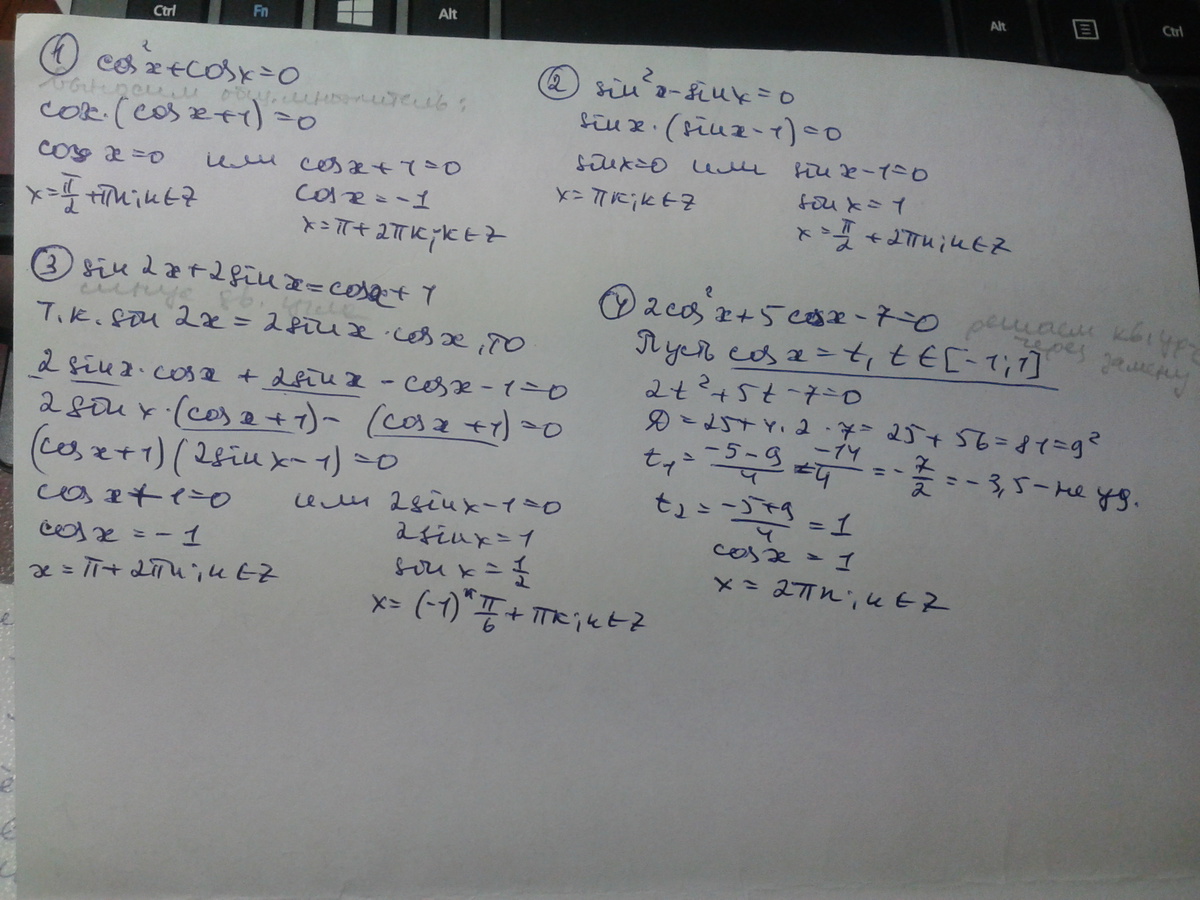 Ctrl Fn Alt Alt Ctrl
① cos²x+cosx=0
выносим общ. множитель:
cox·(cosx+1)=0
cosx=0 или cosx+1=0
x=π/2+πk; k∈Z cosx=-1
x=π+2πk; k∈Z
② sin²x-sinx=0
sinx·(sinx-1)=0
sinx=0 или sinx-1=0
x=πk; k∈Z sinx=1
x=π/2+2πk; k∈Z
③ sin2x+2sinx=cosx+1
синус дв. угла
Т.к. sin2x=2sinx·cosx, то
2sinx·cosx+2sinx-cosx-1=0
2sinx·(cosx+1)-(cosx+1)=0
(cosx+1)(2sinx-1)=0
cosx+1=0 или 2sinx-1=0
cosx=-1 2sinx=1
x=π+2πk; k∈Z sinx=1/2
x=(-1)ᵏπ/6+πk; k∈Z
④ 2cos²x+5cosx-7=0
решаем кв. ур.
через замену
Пусть cosx=t, t∈[-1;1]
2t²+5t-7=0
D=25+4·2·7=25+56=81=9²
t₁=(-5-9)/4=-14/4=-7/2=-3,5-не уд.
t₂=(-5+9)/4=1
cosx=1
x=2πk; k∈Z